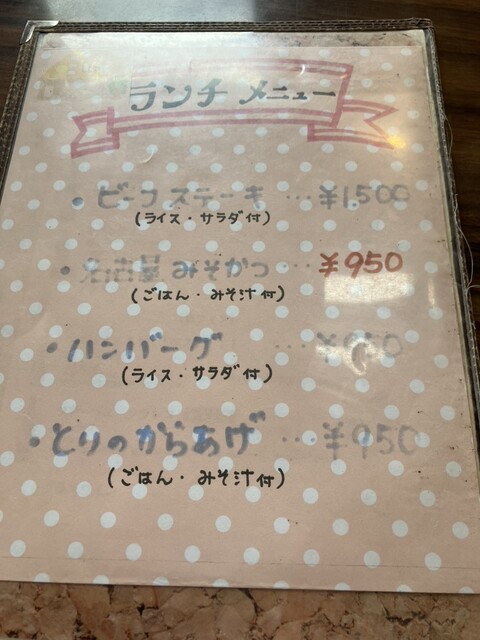 ランチ メニュー
・ビーフステーキ …¥1,500
(ライス・サラダ付)
・名古屋 みそかつ …¥950
(ごはん・みそ汁付)
・ハンバーグ …¥950
(ライス・サラダ付)
・とりのからあげ …¥950
(ごはん・みそ汁付)